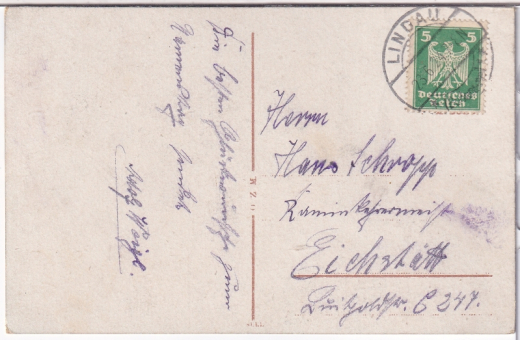 Die besten Glückwünsche zum
Namenstage sendet
LINDAU
5 5
Deutsches
Reich
M Z U
Herrn
Hans Schropp
Kaminkehrermeist
Eichstätt
Luitpoldstr. C 247.